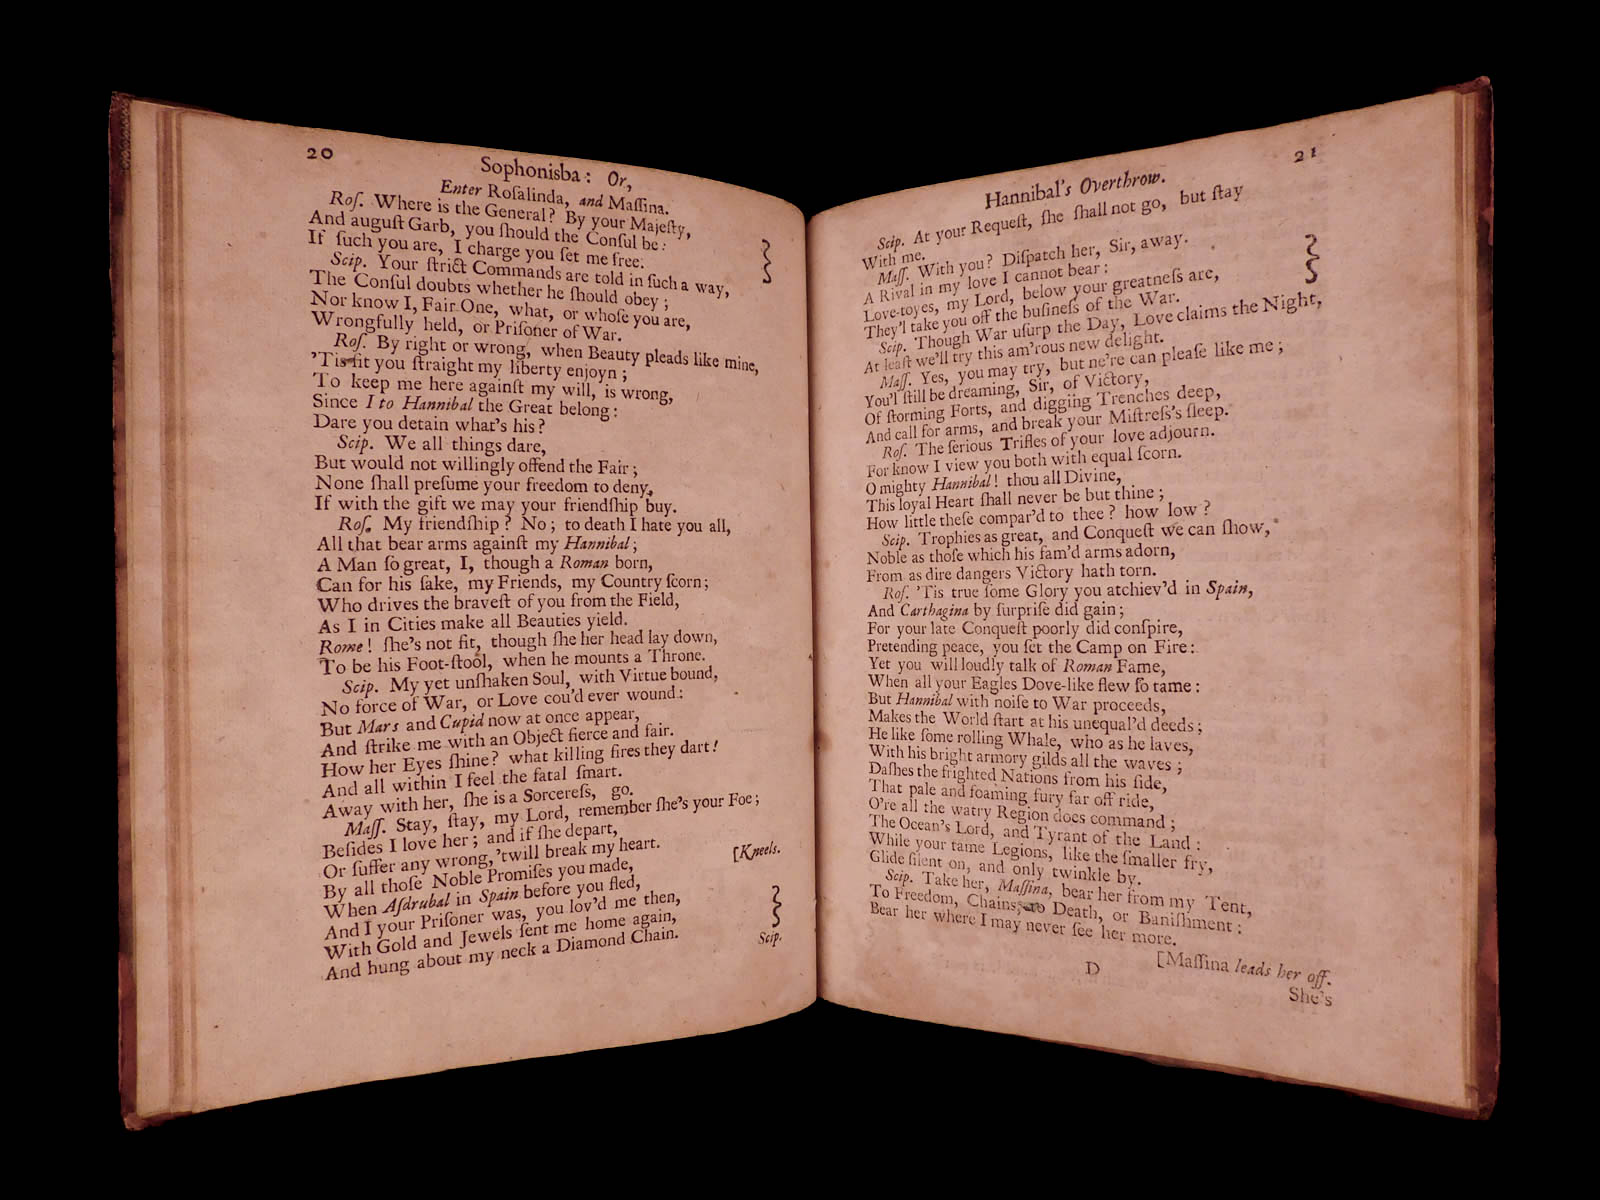 20
Sophonisba: Or,
Enter Roſalinda, and Maſſina.
Roſ. Where is the General? By your Majeſty,
And auguſt Garb, you ſhould the Conſul be:
If ſuch you are, I charge you ſet me free.
Scip. Your ſtrict Commands are told in ſuch a way,
The Conſul doubts whether he ſhould obey;
Nor know I, Fair One, what, or whoſe you are,
Wrongfully held, or Priſoner of War.
Roſ. By right or wrong, when Beauty pleads like mine,
'Tis fit you ſtraight my liberty enjoyn;
To keep me here againſt my will, is wrong,
Since I to Hannibal the Great belong:
Dare you detain what's his?
Scip. We all things dare,
But would not willingly offend the Fair;
None ſhall preſume your freedom to deny,
If with the gift we may your friendſhip buy.
Roſ. My friendſhip? No; to death I hate you all,
All that bear arms againſt my Hannibal;
A Man ſo great, I, though a Roman born,
Can for his ſake, my Friends, my Country ſcorn;
Who drives the braveſt of you from the Field,
As I in Cities make all Beauties yield.
Rome! ſhe's not fit, though ſhe her head lay down,
To be his Foot-ſtool, when he mounts a Throne.
Scip. My yet unſhaken Soul, with Virtue bound,
No force of War, or Love cou'd ever wound:
But Mars and Cupid now at once appear,
And ſtrike me with an Object fierce and fair.
How her Eyes ſhine? what killing fires they dart!
And all within I feel the fatal ſmart.
Away with her, ſhe is a Sorcereſs, go.
Maſſ. Stay, ſtay, my Lord, remember ſhe's your Foe;
Beſides I love her; and if ſhe depart,
Or ſuffer any wrong, 'twill break my heart.
[Kneels.
By all thoſe Noble Promiſes you made,
When Aſdrubal in Spain before you fled,
And I your Priſoner was, you lov'd me then,
With Gold and Jewels ſent me home again,
And hung about my neck a Diamond Chain.
Scip.
21
Hannibal's Overthrow.
Scip. At your Requeſt, ſhe ſhall not go, but ſtay
With me.
Maſſ. With you? Diſpatch her, Sir, away.
A Rival in my love I cannot bear:
Love-toyes, my Lord, below your greatneſs are,
They'l take you off the buſineſs of the War.
Scip. Though War uſurp the Day, Love claims the Night,
At leaſt we'll try this am'rous new delight.
Maſſ. Yes, you may try, but ne're can pleaſe like me;
You'l ſtill be dreaming, Sir, of Victory,
Of ſtorming Forts, and digging Trenches deep,
And call for arms, and break your Miſtreſs's ſleep.
Roſ. The ſerious Trifles of your love adjourn.
For know I view you both with equal ſcorn.
O mighty Hannibal! thou all Divine,
This loyal Heart ſhall never be but thine;
How little theſe compar'd to thee? how low?
Scip. Trophies as great, and Conqueſt we can ſhow,
Noble as thoſe which his fam'd arms adorn,
From as dire dangers Victory hath torn.
Roſ. 'Tis true ſome Glory you atchiev'd in Spain,
And Carthagina by ſurpriſe did gain;
For your late Conqueſt poorly did conſpire,
Pretending peace, you ſet the Camp on Fire:
Yet you will loudly talk of Roman Fame,
When all your Eagles Dove-like flew ſo tame:
But Hannibal with noiſe to War proceeds,
Makes the World ſtart at his unequal'd deeds;
He like ſome rolling Whale, who as he laves,
With his bright armory gilds all the waves;
Daſhes the frighted Nations from his ſide,
That pale and foaming fury far off ride,
O're all the watry Region does command;
The Ocean's Lord, and Tyrant of the Land:
While your tame Legions, like the ſmaller fry,
Glide ſilent on, and only twinkle by.
Scip. Take her, Maſſina, bear her from my Tent,
To Freedom, Chains, to Death, or Baniſhment:
Bear her where I may never ſee her more.
[Maſſina leads her off.
D
She's